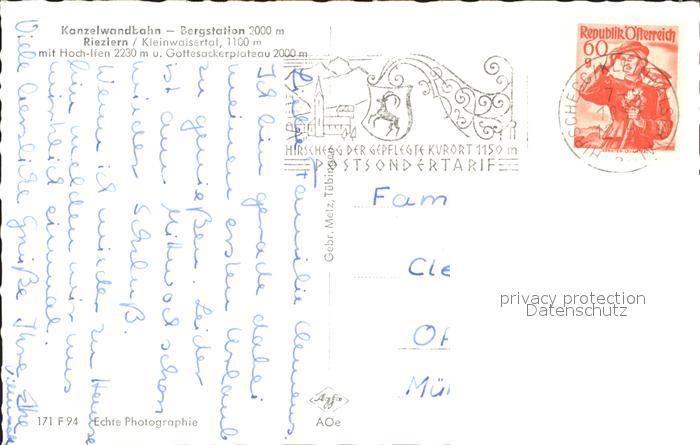 Kanzelwandbahn — Bergstation 2000 m
Riezlern / Kleinwalsertal, 1100 m
mit Hoch-Ifen 2230 m u. Gottesackerplateau 2000 m
Republik Österreich
60
g
HIRSCHEGG DER GEPFLEGTE KURORT 1150 m
POSTSONDERTARIF
Familie Clemens.
Ich bin gerade dabei
meinen ersten Urlaub
zu genießen. Leider
ist am Mittwoch schon
wieder Schluß.
Wenn ich wieder zu Hause
bin melden wir uns
wirklich einmal.
Viele herzliche Grüße Ihre
Gebr. Metz, Tübingen
Fam
Cle
Mü
privacy protection
Datenschutz
171 F 94 Echte Photographie
Agfa
AOe